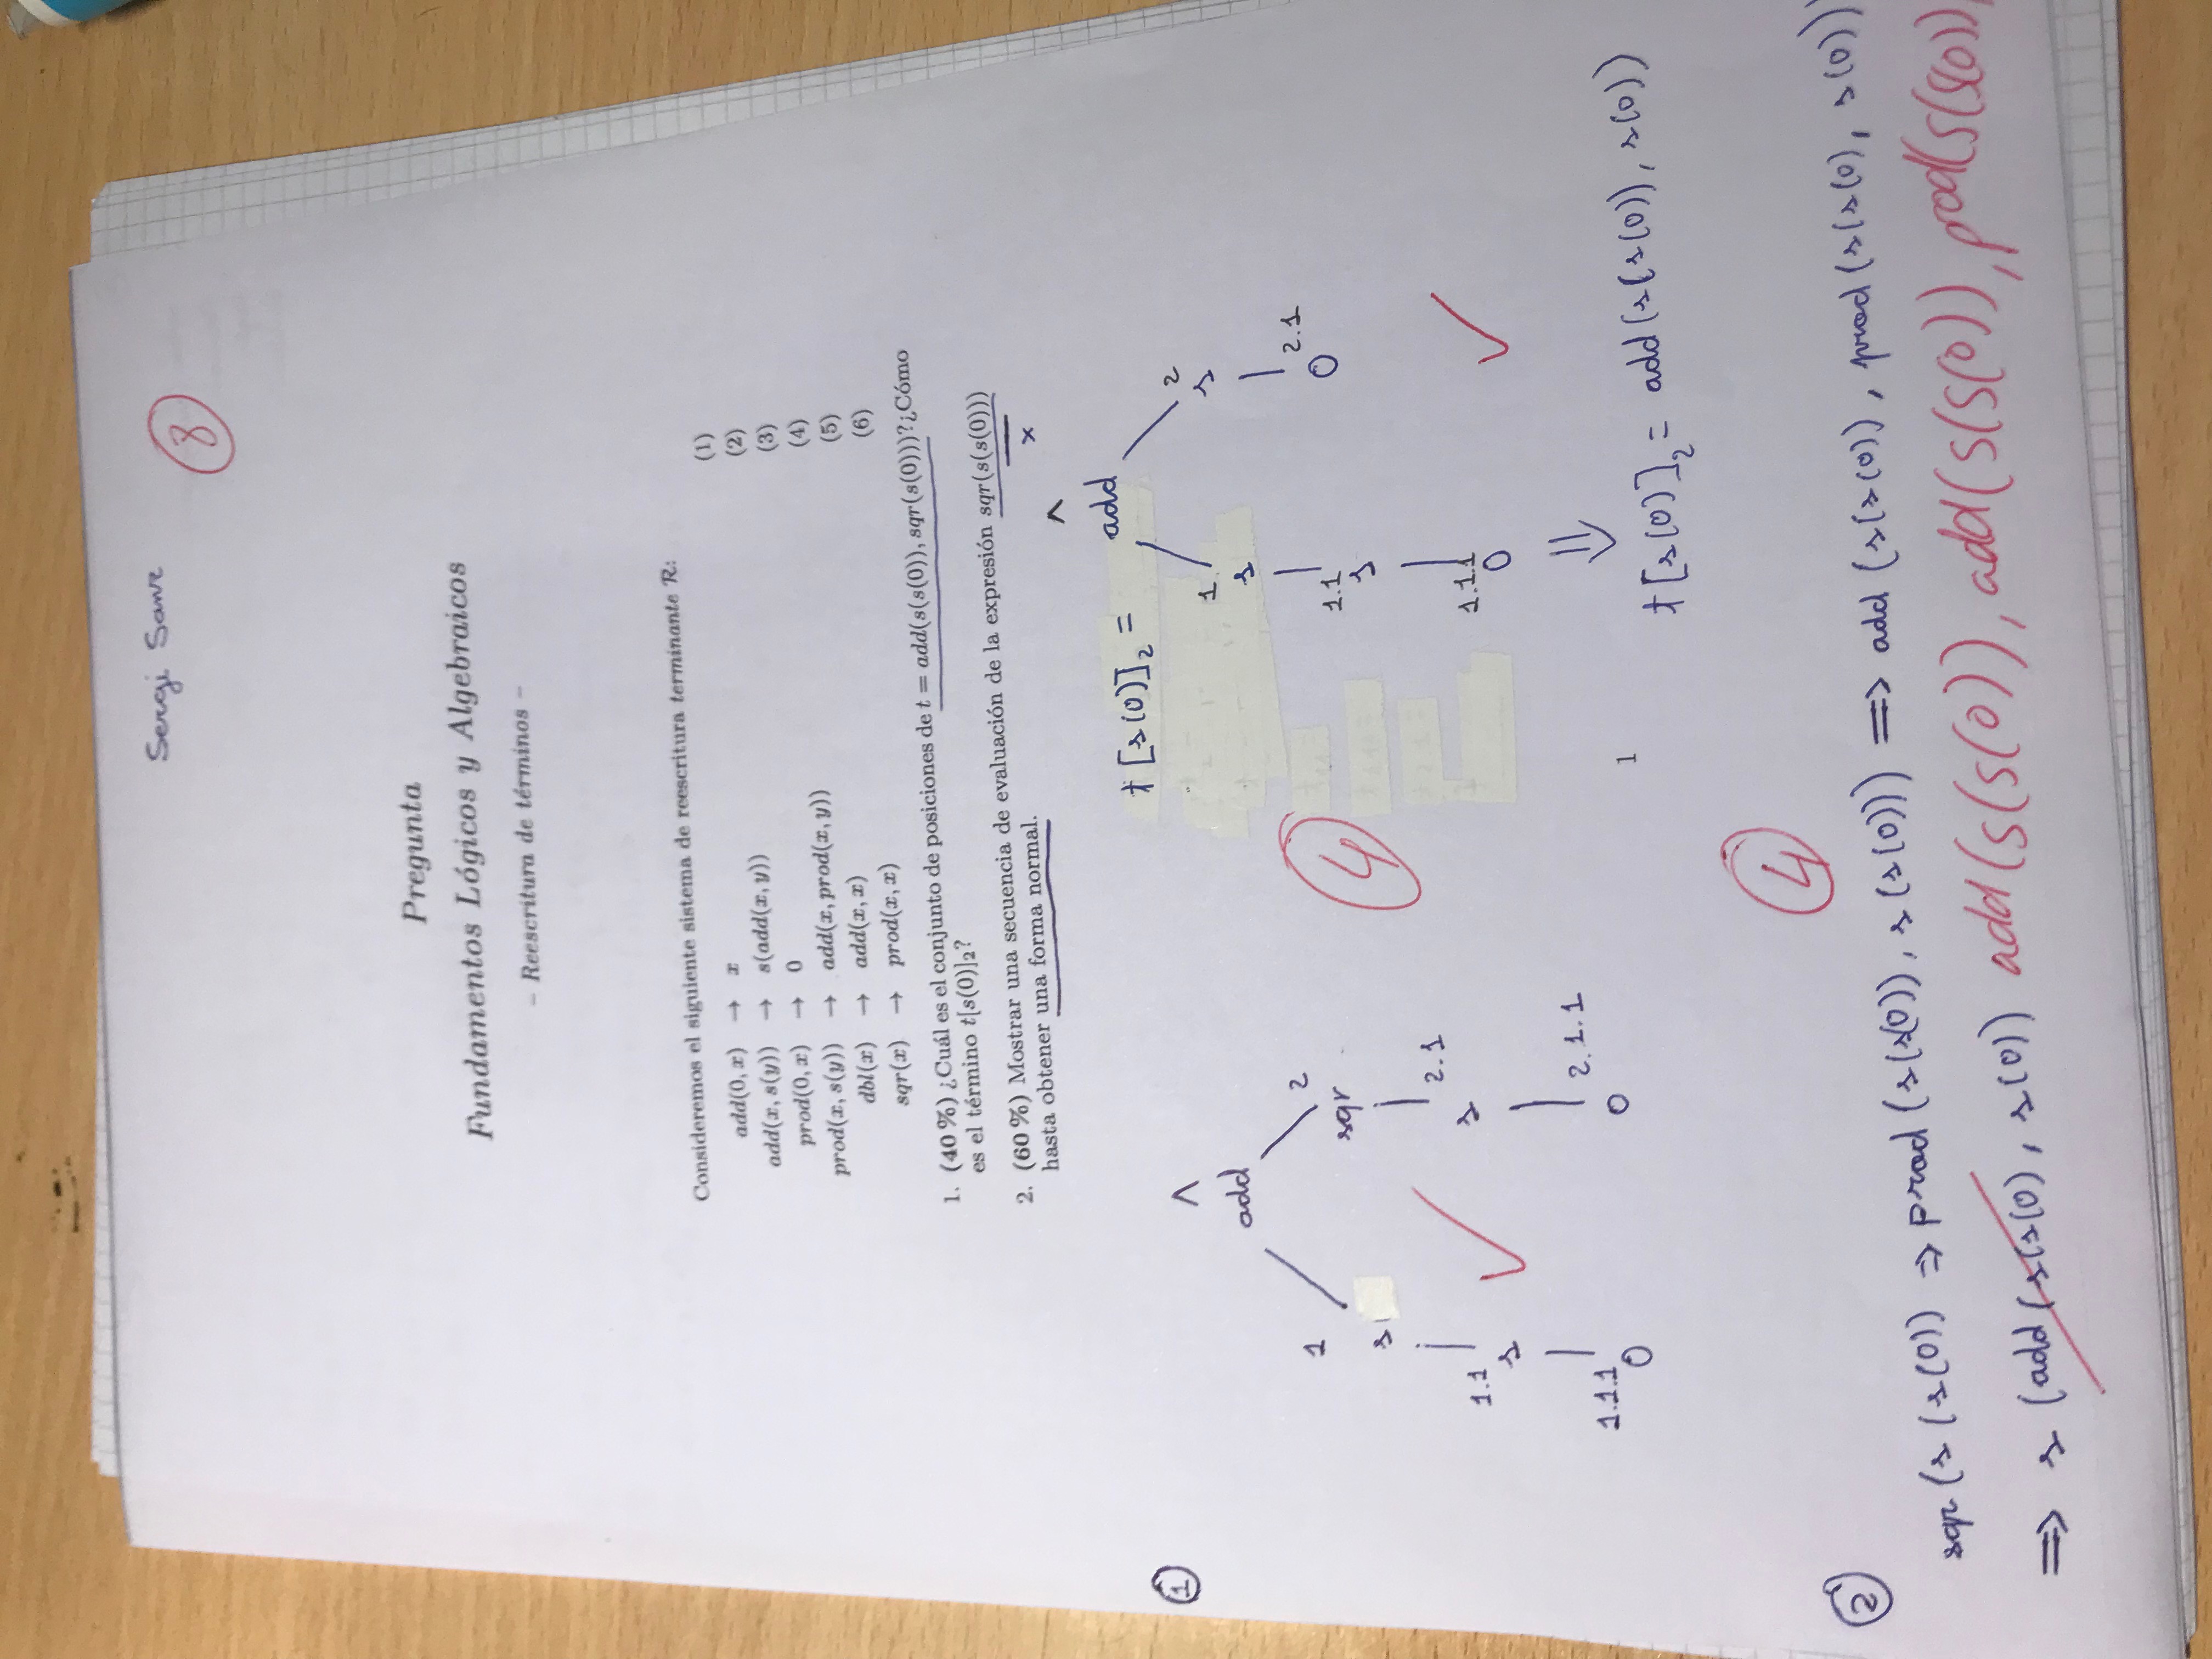 Sergi Sanz
8
Pregunta
Fundamentos Lógicos y Algebraicos
– Reescritura de términos –
Consideremos el siguiente sistema de reescritura terminante R:
add(0, x) → x (1)
add(x, s(y)) → s(add(x, y)) (2)
prod(0, x) → 0 (3)
prod(x, s(y)) → add(x, prod(x, y)) (4)
dbl(x) → add(x, x) (5)
sqr(x) → prod(x, x) (6)
1. (40 %) ¿Cuál es el conjunto de posiciones de t = add(s(s(0)), sqr(s(0)))?¿Cómo
es el término t[s(0)]₂?
2. (60 %) Mostrar una secuencia de evaluación de la expresión sqr(s(s(0)))
hasta obtener una forma normal.
x
1
Λ
add
1 2
s sqr
1.1 2.1
s s
1.1.1 2.1.1
0 0
4
t[s(0)]₂ =
Λ
add
1 2
s s
1.1 2.1
s 0
1.1.1
0
⇓
t[s(0)]₂ = add(s(s(0)), s(0))
1
4
2
sqr(s(s(0)) ⇒ prod(s(s(0)), s(s(0))) ⇒ add(s(s(0)), prod(s(s(0), s(0))
⇒ s(add(s(s(0), s(0)) add(s(s(0)), add(s(s(0)), prod(s(s(0)),